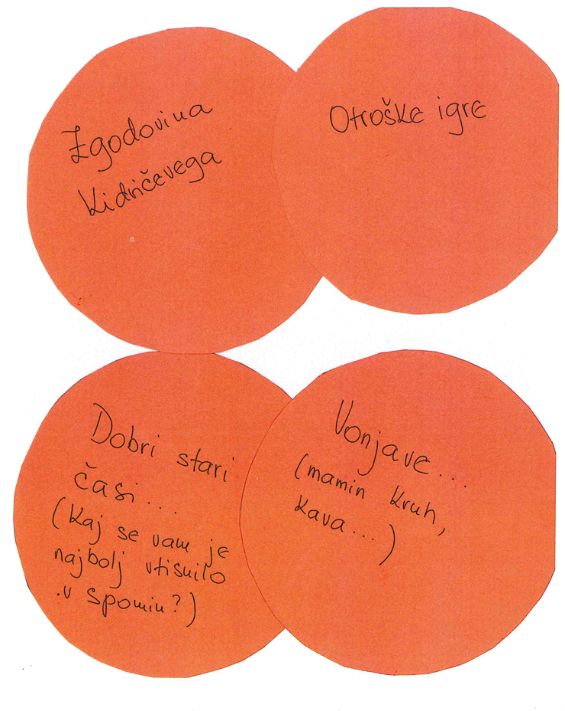 Zgodovina
Kidričevega
Otroške igre
Dobri stari
časi....
(Kaj se vam je
najbolj vtisnilo
v spomin?)
Vonjave...
(mamin kruh,
kava...)